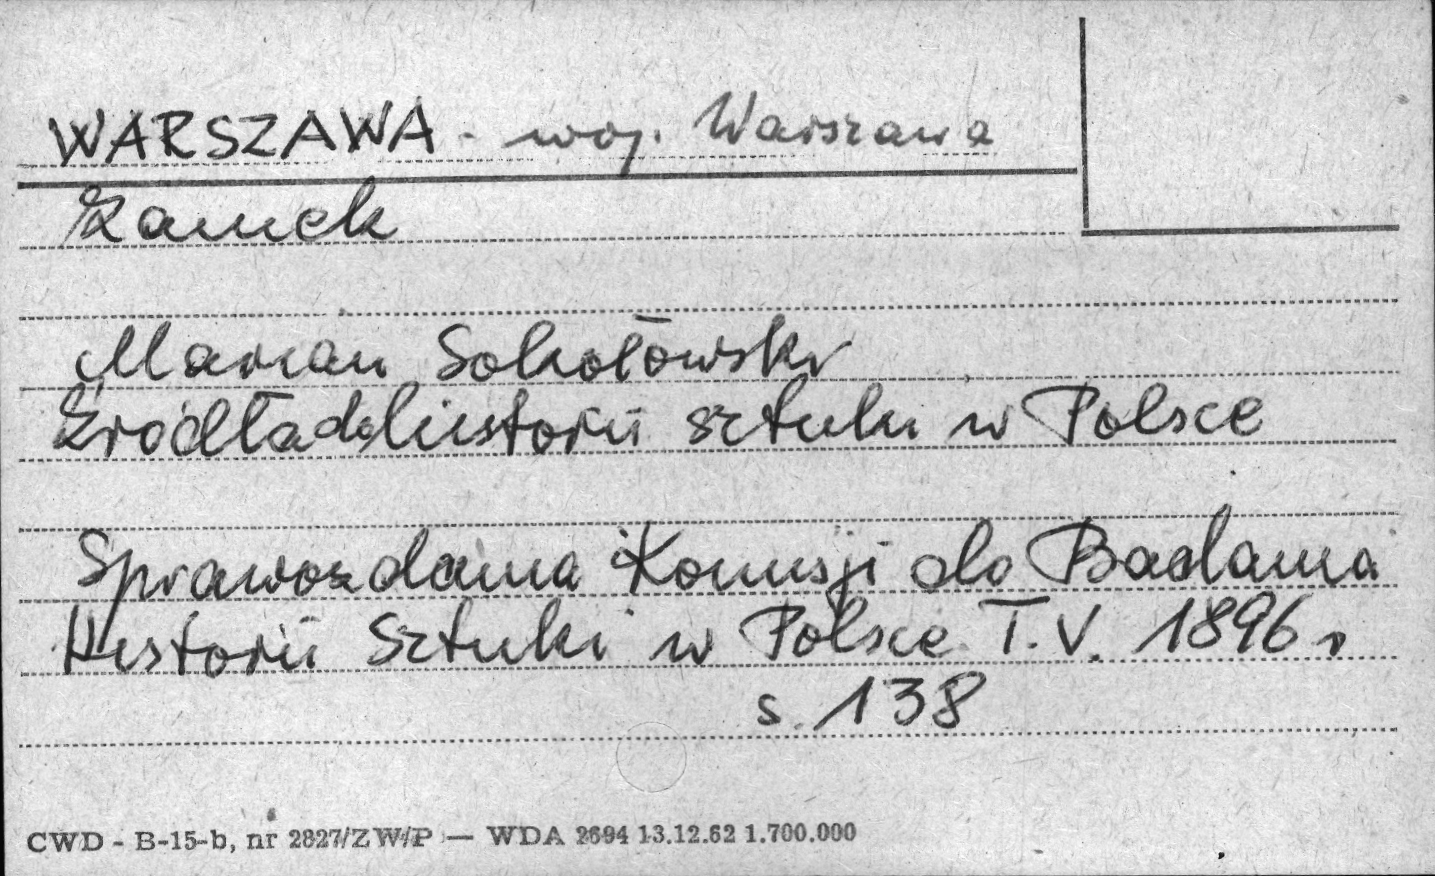 WARSZAWA - woj. Warszawa
Zamek
Marian Sokołowski
Źródła do historii sztuki w Polsce
Sprawozdania Komisji do Badania
Historii Sztuki w Polsce T.V. 1896 r
s. 138
CWD - B-15-b, nr 2827/ZW/P — WDA 2694 13.12.62 1.700.000